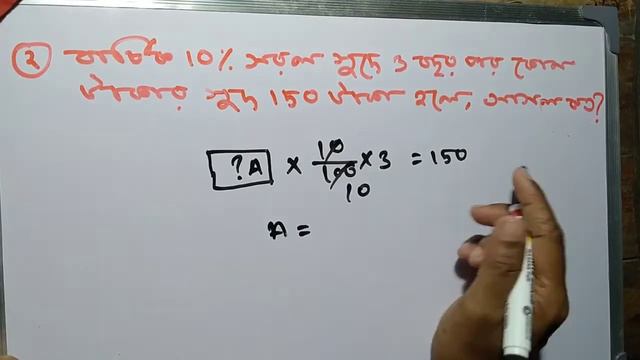 ২ বার্ষিক 10% সরল সুদে 3 বছর পর কোন
টাকার সুদ 150 টাকা হলে, আসল কত?
?A × 10/100 × 3 = 150
10
A =